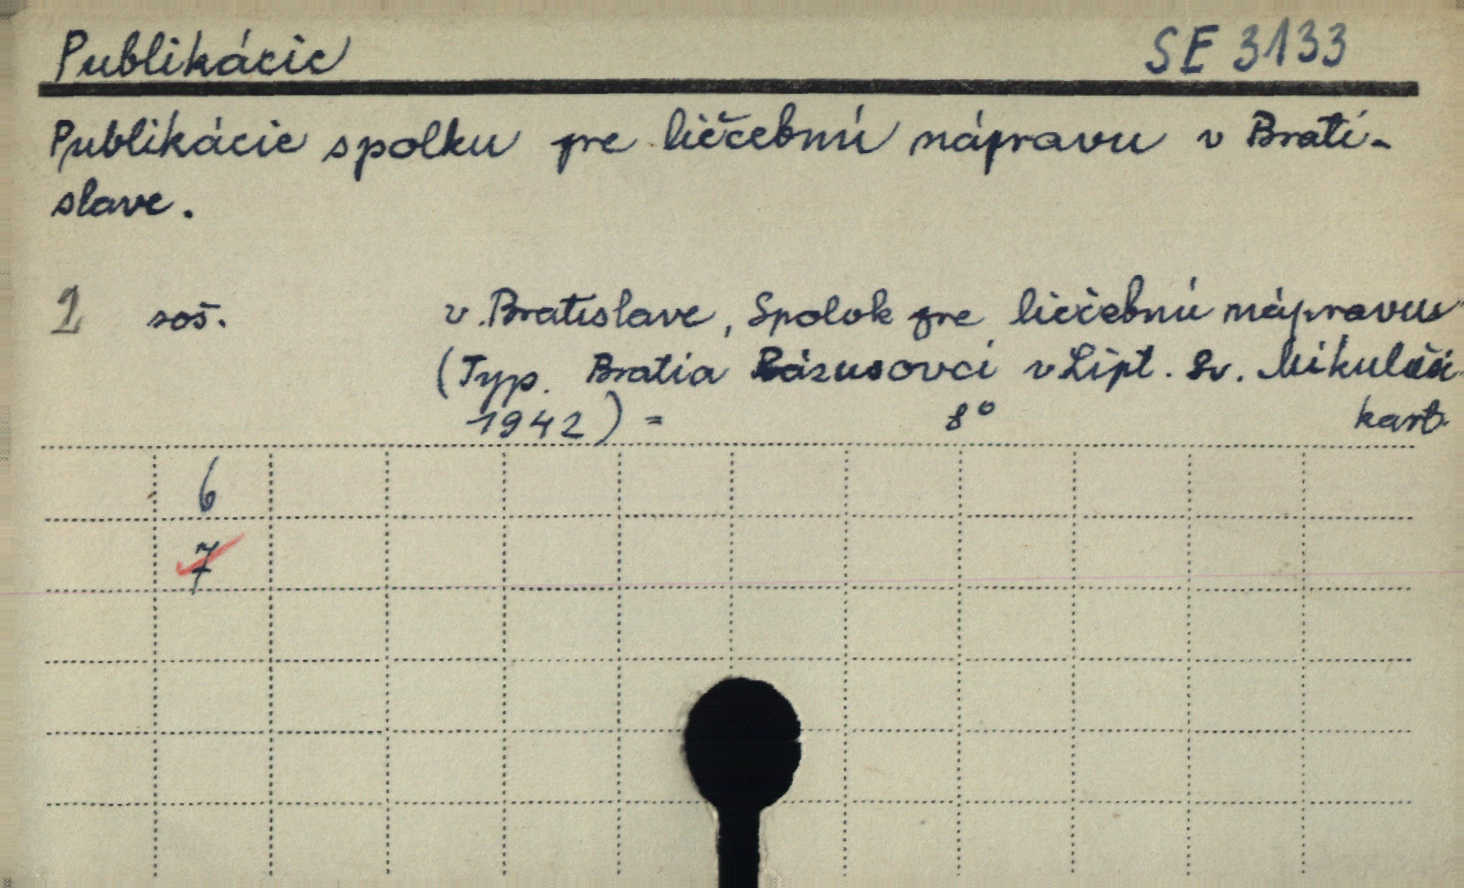 Publikácie SE 3133
Publikácie spolku pre liečebnú nápravu v Brati-
slave.
2 soš. v Bratislave, Spolok pre liečebnú nápravu
(Typ. Bratia Rázusovci v Lipt. Sv. Mikuláši
1942) = 8° kart.
6
7